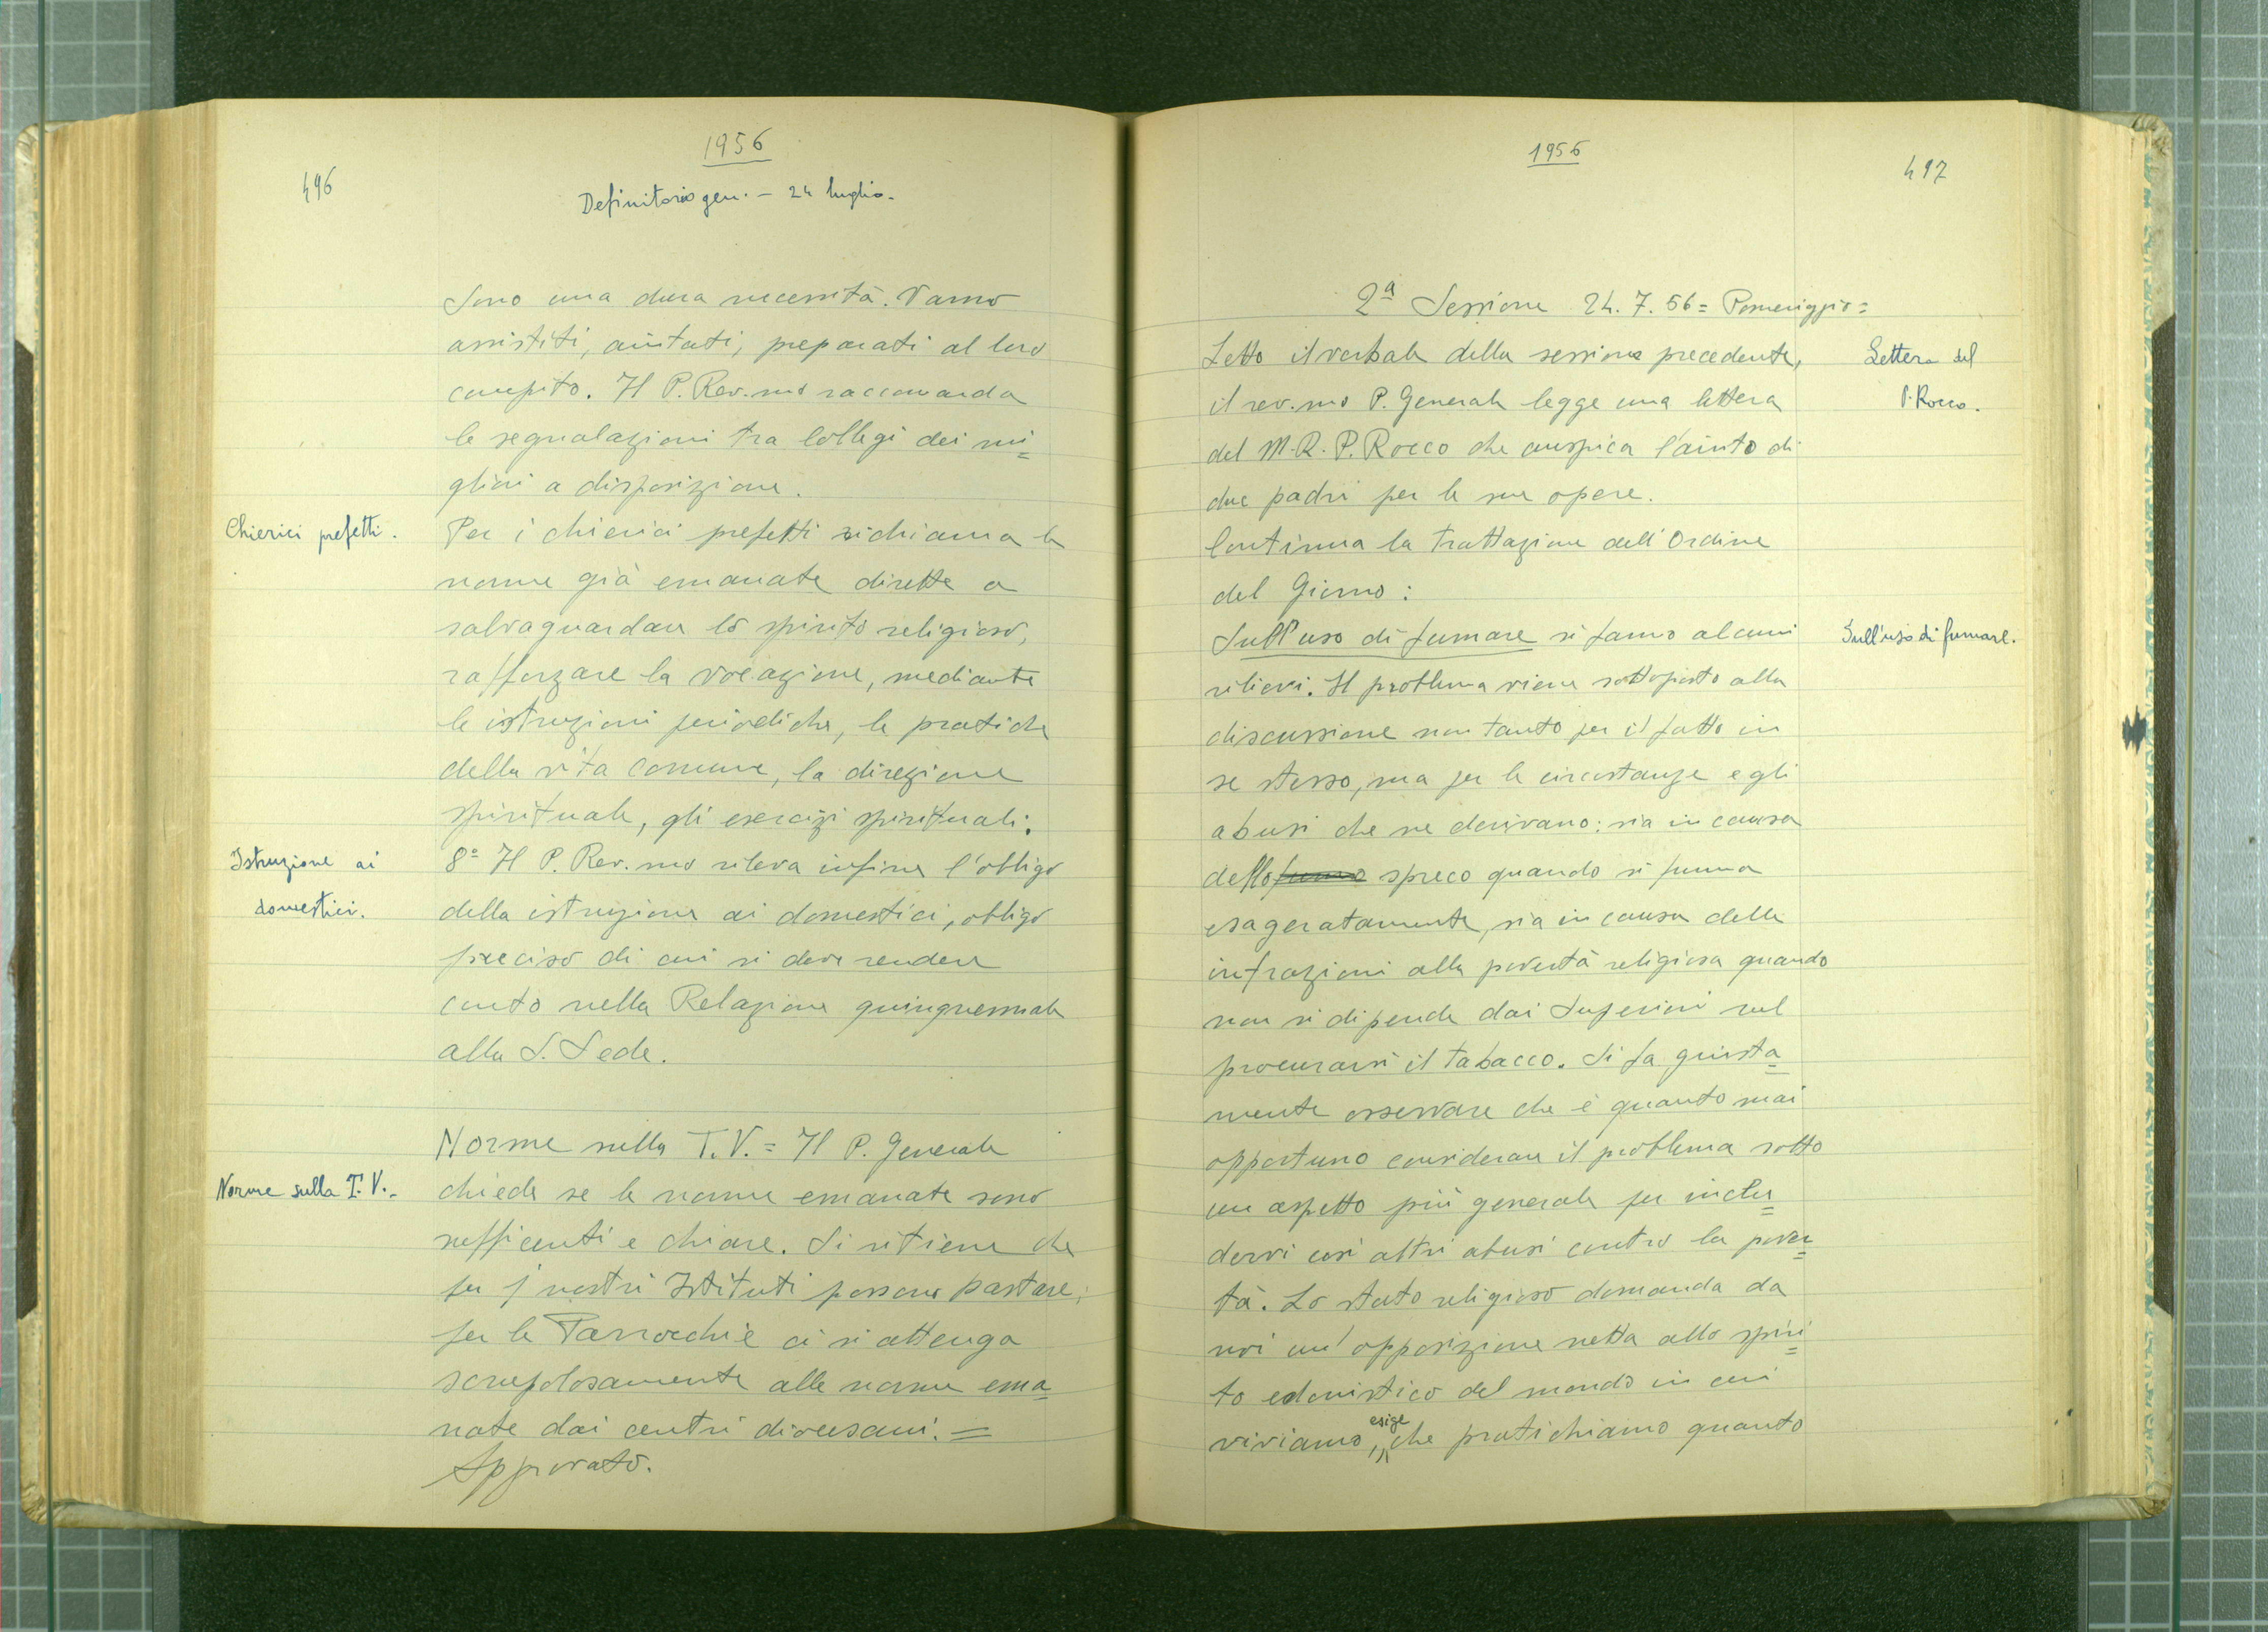 1956
496
Definitorio gen. - 24 luglio.
Sono una dura necessità. Vanno
assistiti, aiutati, preparati al loro
compito. Il P. Rev.mo raccomanda
le segnalazioni tra Collegi dei mi=
gliori a disposizione.
Chierici prefetti.
Per i chierici prefetti richiama le
norme già emanate dirette a
salvaguardare lo spirito religioso,
rafforzare la vocazione, mediante
le istruzioni periodiche, le pratiche
della vita comune, la direzione
spirituale, gli esercizi spirituali.
Istruzione ai
domestici.
8° Il P. Rev.mo rileva infine l'obbligo
della istruzione ai domestici, obbligo
preciso di cui si deve rendere
conto nella Relazione quinquennale
alla S. Sede.
Norme sulla T.V. = Il P. Generale
Norme sulla T.V.-
chiede se le norme emanate sono
sufficenti e chiare. Si ritiene che
per i nostri Istituti possono bastare;
per le Parrocchie ci si attenga
scrupolosamente alle norme ema=
nate dai centri diocesani. =
Approvato.
1956
497
2ª Sessione 24.7.56 = Pomeriggio =
Letto il verbale della sessione precedente,
Lettera del
P. Rocco.
il rev.mo P. Generale legge una lettera
del M.R.P. Rocco che auspica l'aiuto di
due padri per le sue opere.
Continua la trattazione dell'Ordine
del Giorno:
Sull'uso di fumare si fanno alcuni
Sull'uso di fumare.
rilievi. Il problema viene sottoposto alla
discussione non tanto per il fatto in
se stesso, ma per le circostanze e gli
abusi che ne derivano: sia in causa
dello fumo spreco quando si fuma
esageratamente, sia in causa delle
infrazioni alla povertà religiosa quando
non si dipende dai Superiori nel
procurarsi il tabacco. Si fa giusta=
mente osservare che è quanto mai
opportuno considerare il problema sotto
un aspetto più generale per inclu=
dervi così altri abusi contro la pover=
tà. Lo stato religioso domanda da
noi un'opposizione netta allo spiri=
to edonistico del mondo in cui
viviamo, esige che pratichiamo quanto